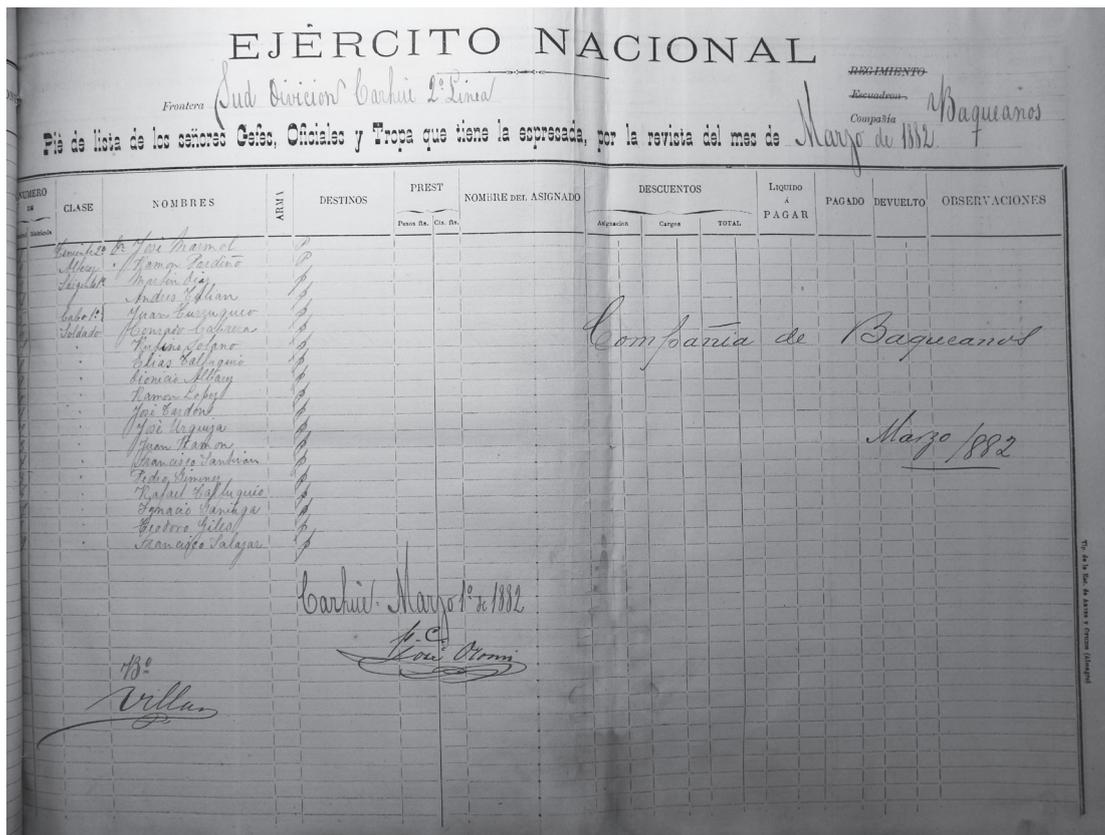 EJÉRCITO NACIONAL
Frontera Sud Division Carhué 2ª Linea
REGIMIENTO
Escuadron
Compañia Baqueanos
Pié de lista de los señores Gefes, Oficiales y Tropa que tiene la espresada, por la revista del mes de Marzo de 1882.
NUMERO DE CLASE NOMBRES ARMA DESTINOS PREST NOMBRE DEL ASIGNADO DESCUENTOS LIQUIDO Á PAGAR PAGADO DEVUELTO OBSERVACIONES
Pesos fts. Cts. fts. Asignacion Cargos TOTAL
Teniente 2º José Marmol P
Alferez " Ramon Pardiño P
Sargento 1º Martin Diaz p
Andres p
Cabo 1º Juan p
Soldado Conrado Cabrera p
" Rufino Solano p
" Elias Calfuquio p
" Dionicio p
" Ramon Lopez p
" José Cardon p
" José Urquiza p
" Juan Ramon p
" Francisco p
" Pedro Gimenez p
" Rafael Calfuquio p
" Ygnacio p
" Teodoro Giles p
" Francisco Salazar p
Compañia de Baqueanos
Marzo /882
Carhué. Marzo 1º de 1882
p. C.
José Oromi
Vº Bº
Villar
Tip. de la Esc. de Artes y Oficios (Almagro)